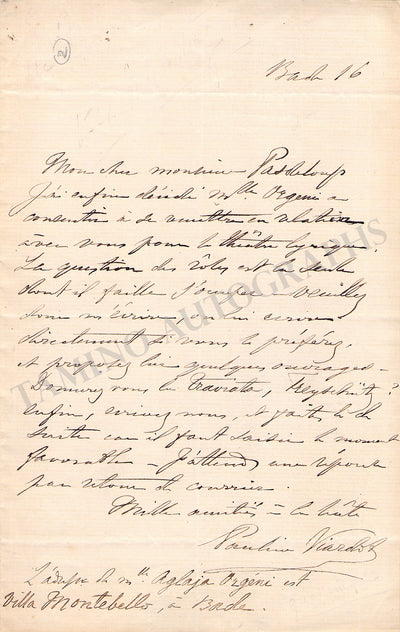 2
Bade 16
Mon cher monsieur Pasdeloup
J'ai enfin décidé Mlle Orgeni à
consentir à se remettre en relation
avec vous pour le théâtre lyrique.
La question des rôles est la seule
dont il faille s'occuper - veuillez
donc m'écrire, ou lui écrire
directement si vous le préférez,
et proposez lui quelques ouvrages -
Donnez vous la Traviata, Freyschütz?
Enfin, écrivez nous, et faites le de
suite car il faut saisir le moment
favorable - J'attends une réponse
par retour de courrier.
Mille amitiés à la hâte
Pauline Viardot
L'adresse de Mlle Aglaja Orgéni est
Villa Montebello, à Bade.
TAMINO AUTOGRAPHS